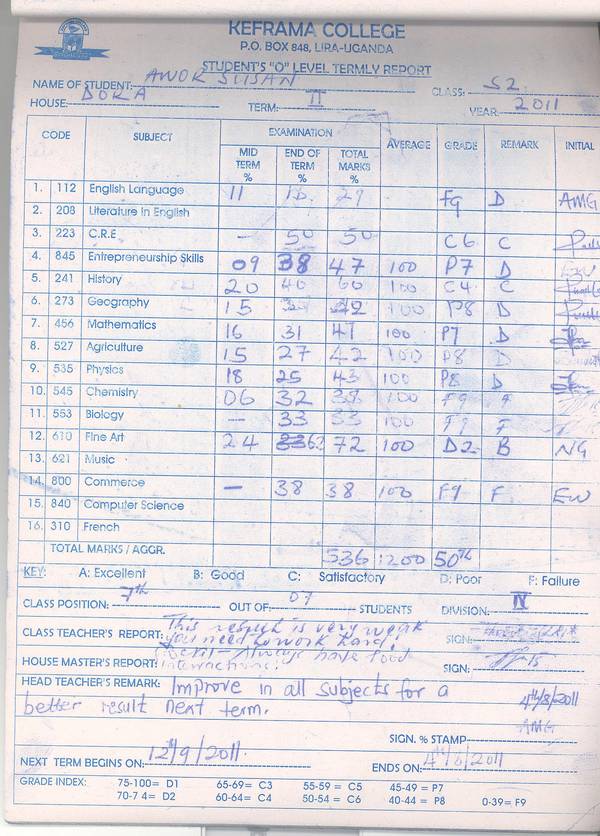 KEFRAMA COLLEGE
P.O. BOX 848, LIRA-UGANDA
STUDENT'S "O" LEVEL TERMLY REPORT
NAME OF STUDENT: AWOR SUSAN CLASS: S2
HOUSE: DOKA TERM: II YEAR: 2011
CODE SUBJECT EXAMINATION AVERAGE GRADE REMARK INITIAL
MID TERM % END OF TERM % TOTAL MARKS %
1. 112 English Language 11 18 29 F9 D AMG
2. 208 Literature in English
3. 223 C.R.E — 50 50 C6 C
4. 845 Entrepreneurship Skills 09 38 47 100 P7 D
5. 241 History 20 40 60 100 C4 C
6. 273 Geography 15 42 100 P8 D
7. 456 Mathematics 16 31 47 100 P7 D
8. 527 Agriculture 15 27 42 100 P8 D
9. 535 Physics 18 25 43 100 P8 D
10. 545 Chemistry 06 32 38 100 F9 F
11. 553 Biology — 33 33 100 F9 F
12. 610 Fine Art 24 72 100 D2 B NG
13. 621 Music
14. 800 Commerce — 38 38 100 F9 F EW
15. 840 Computer Science
16. 310 French
TOTAL MARKS / AGGR. 536 1200 50th
KEY: A: Excellent B: Good C: Satisfactory D: Poor F: Failure
CLASS POSITION: 7th OUT OF: 07 STUDENTS DIVISION: IV
CLASS TEACHER'S REPORT: This result is very weak
you need to work hard! SIGN:
HOUSE MASTER'S REPORT: Social - Always have good
interactions! SIGN:
HEAD TEACHER'S REMARK: Improve in all subjects for a
better result next term. 4th/8/2011
AMG
SIGN. % STAMP
NEXT TERM BEGINS ON: 12/9/2011 ENDS ON:
GRADE INDEX: 75-100= D1 65-69= C3 55-59 = C5 45-49 = P7
70-7 4= D2 60-64= C4 50-54 = C6 40-44 = P8 0-39= F9